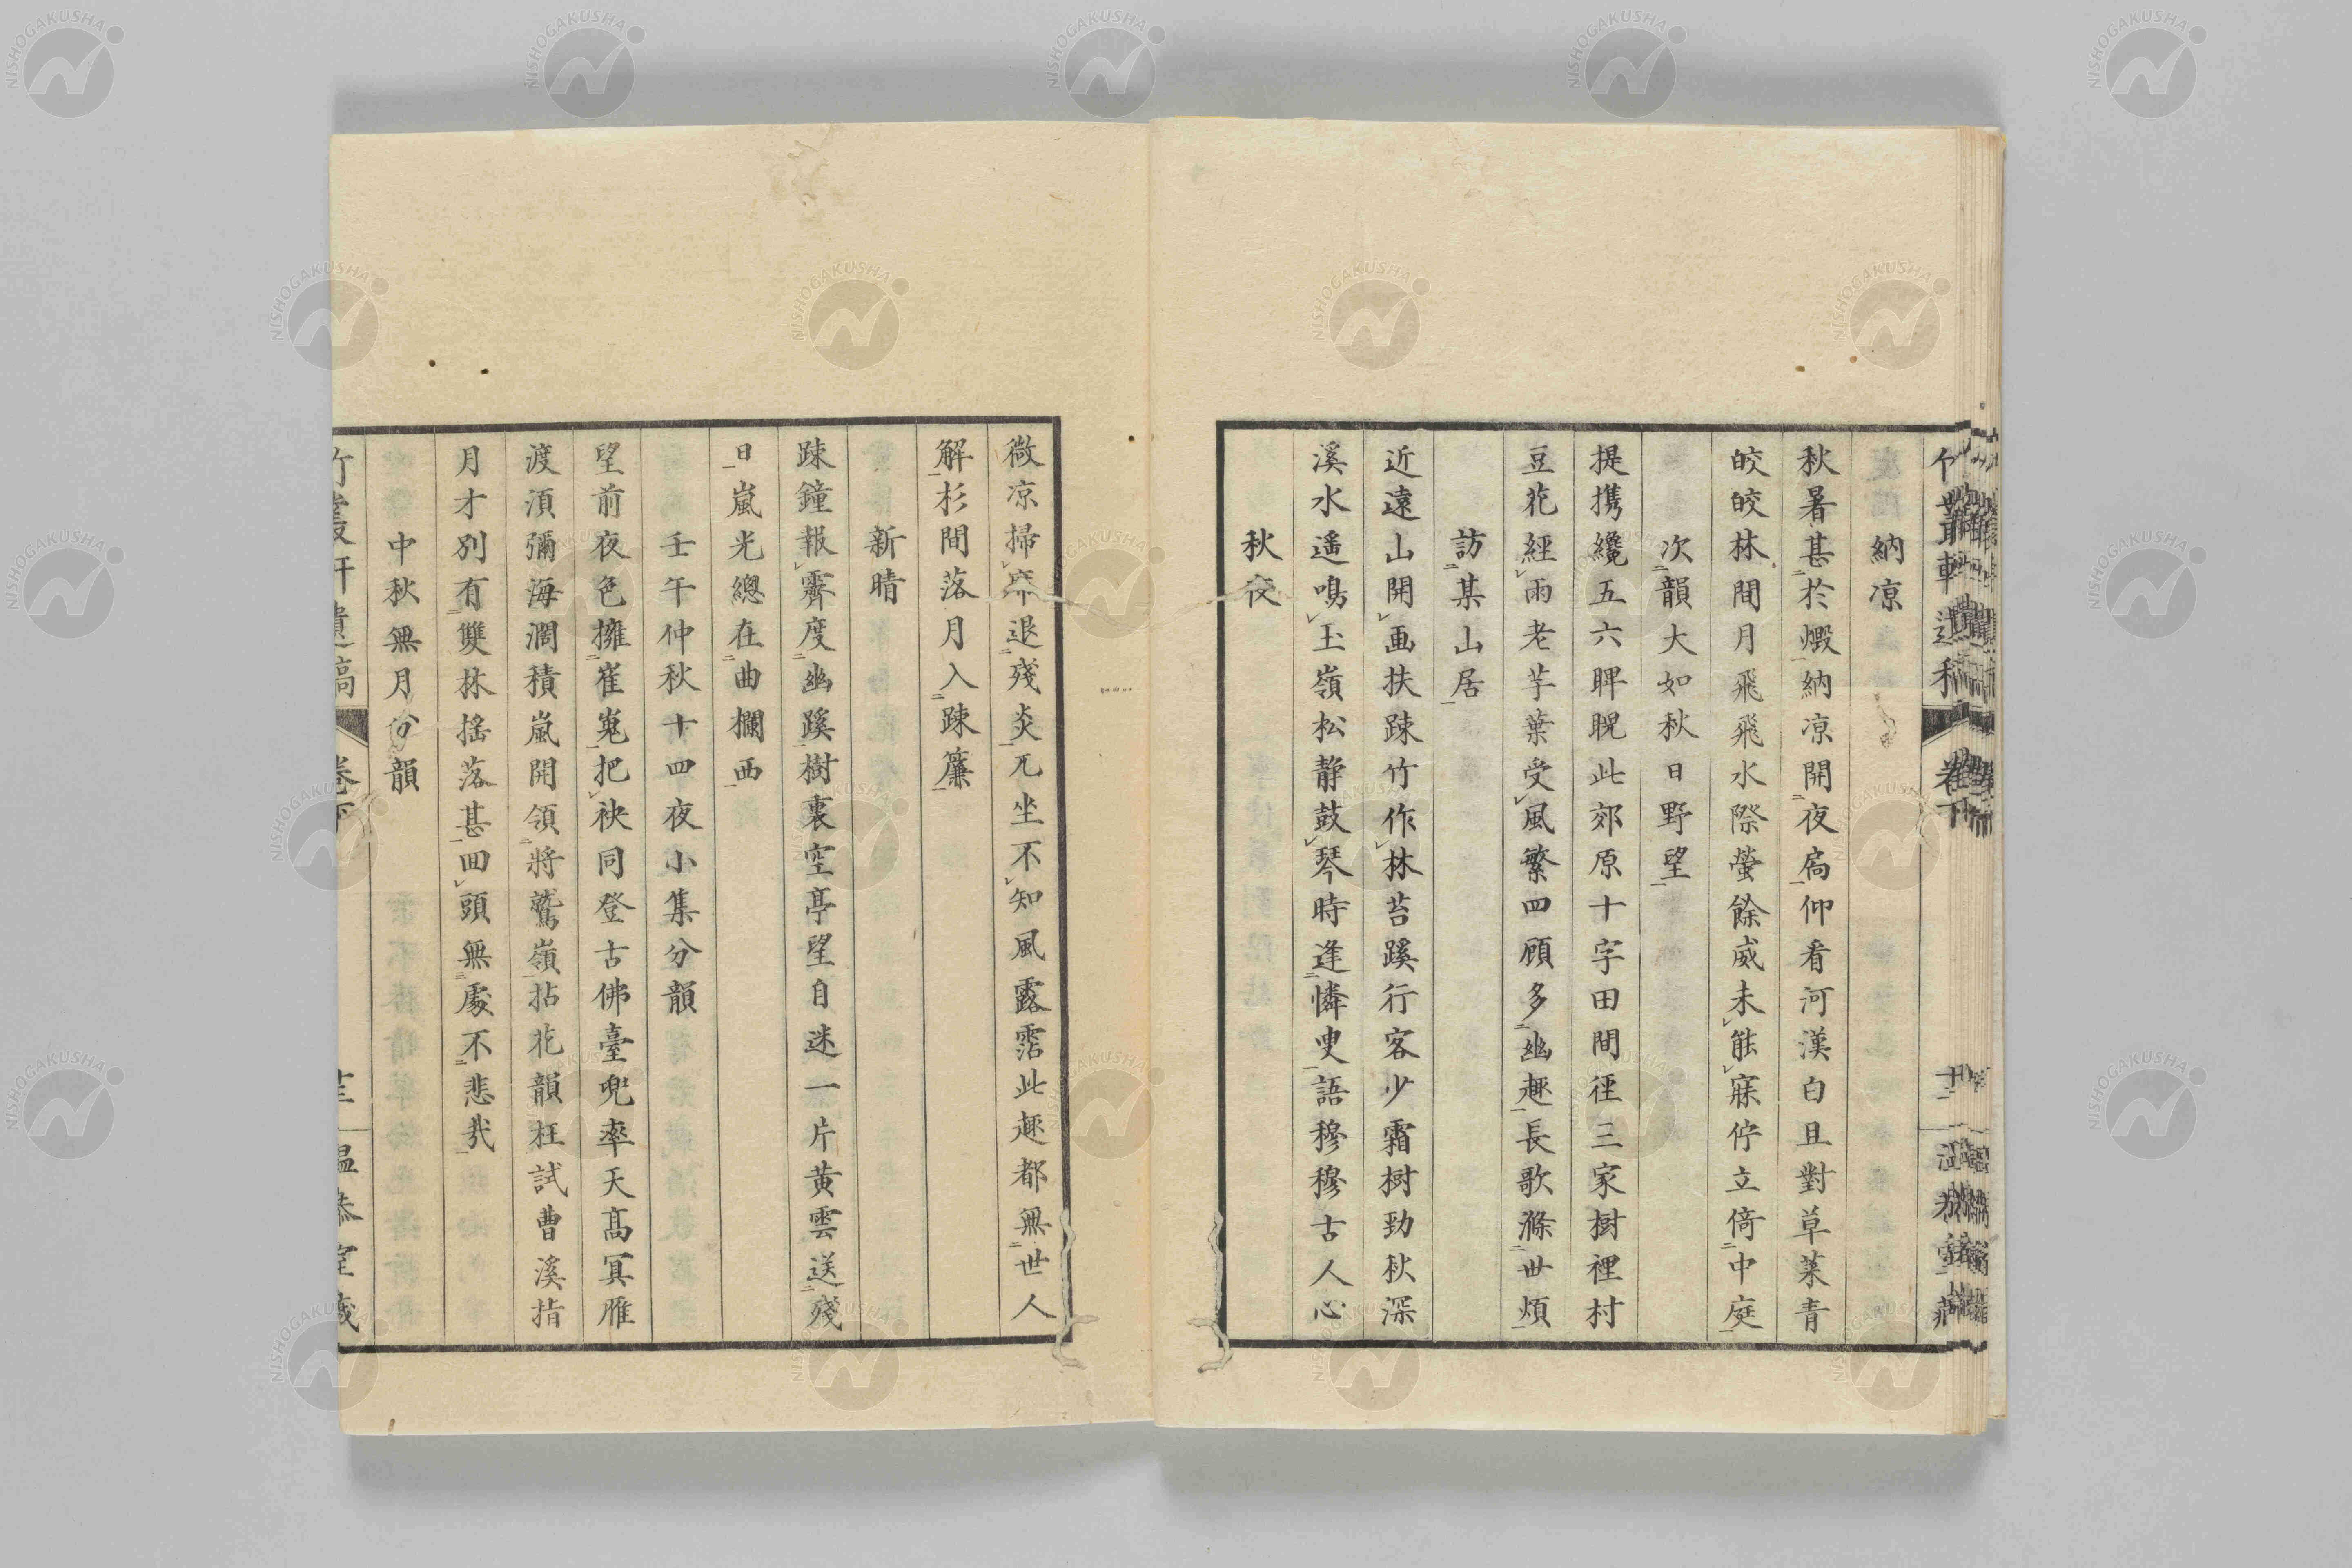 納凉
秋暑甚於燬納凉開夜扃仰看河漢白且對草菉青
皎皎林間月飛飛水際螢餘威未能寐佇立倚中庭
次韻大如秋日野望
提携纔五六睥睨此郊原十字田間徑三家樹裡村
豆花經雨老芋葉受風繁四顧多幽趣長歌滌世煩
訪某山居
近遠山開画扶踈竹作林苔蹊行客少霜樹勁秋深
溪水遥鳴玉嶺松静鼓琴時逢憐叟語穆穆古人心
秋夜
微凉掃席退殘炎兀坐不知風露霑此趣都無世人
解杉間落月入踈簾
新晴
踈鐘報霽度幽蹊樹裏空亭望自迷一片黄雲送殘
日嵐光總在曲欄西
壬午仲秋十四夜小集分韻
望前夜色擁崔嵬把袂同登古佛臺兜率天高冥雁
渡湏彌海濶積嵐開領將鷲嶺拈花韻枉試曹溪指
月才別有雙林揺落甚回頭無處不悲哉
中秋無月分韻
竹叢軒遺稿 卷下 温恭室藏
NISHOGAKUSHA